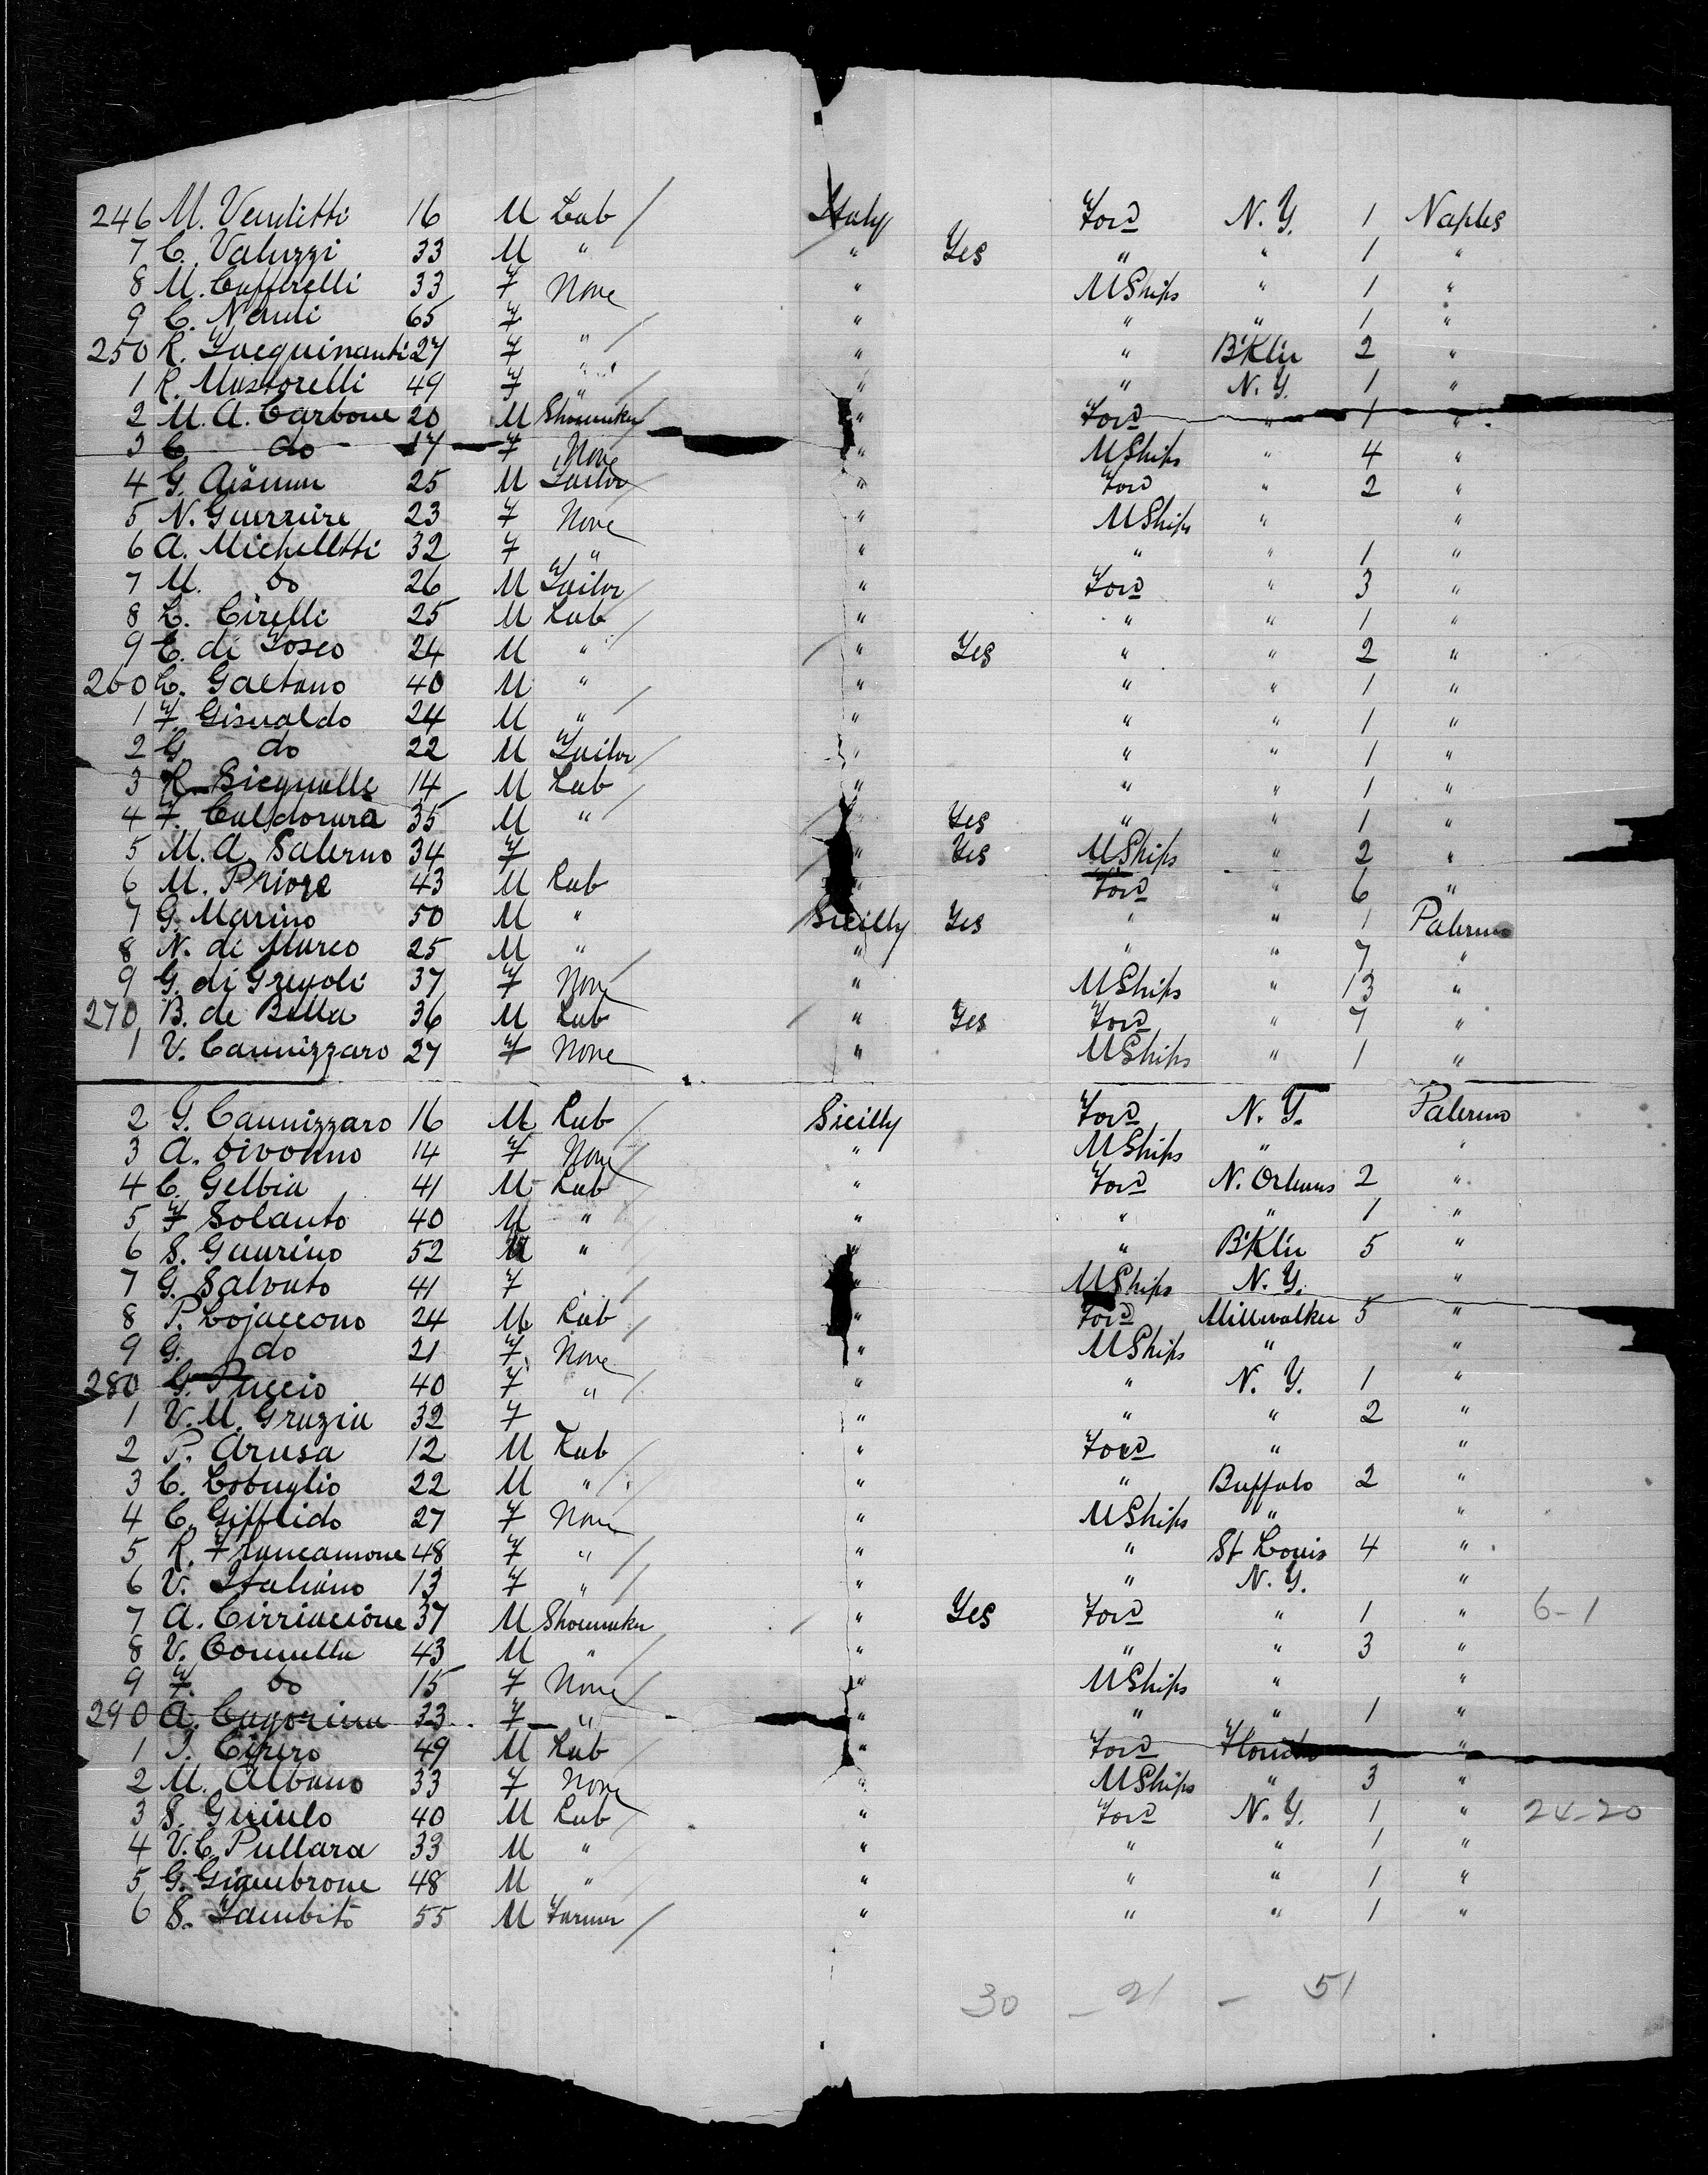 246 M. Venditti 16 M Lab / Italy Forwd N.Y. 1 Naples
7 C. Valuzzi 33 M " " Yes " " 1 "
8 M. Caffarelli 33 F None " MShips " 1 "
9 C. Nardi 65 F " / " " " 1 "
250 R. Iacquinanti 27 F " " " B'Klin 2 "
1 R. Mastorelli 49 F " / " " N.Y. 1 "
2 M. A. Carbone 20 M Shoemaker / " Forwd " 1 "
3 C. do 17 F None " MShips " 4 "
4 G. 25 M Tailor / " Forwd " 2 "
5 N. Guerriere 23 F None / " MShips " "
6 A. Michelltti 32 F " " " " 1 "
7 M. do 26 M Tailor / " Forwd " 3 "
8 L. Cirelli 25 M Lab / " " " 1 "
9 C. di Iosco 24 M " / " Yes " " 2 "
260 C. Gaetano 40 M " " " " 1 "
1 F. Gisualdo 24 M " / " " " 1 "
2 G do 22 M Tailor / " " " 1 "
3 R 14 M Lab / " " " 1 "
4 F. Caldorara 35 M " / " Yes " " 1 "
5 M. A. Salerno 34 F / " Yes MShips " 2 "
6 M. Priore 43 M Lab / " Forwd " 6 "
7 G. Marino 50 M " Sicilly Yes " " 1 Palermo
8 N. di Marco 25 M " / " " " 7 "
9 G. di Gregoli 37 F None / " MShips " 13 "
270 B. de Bella 36 M Lab / " Yes Forwd " 7 "
1 V. Cannizzaro 27 F None " MShips " 1 "
2 G. Cannizzaro 16 M Lab / Sicilly Forwd N.Y. Palermo
3 A. Divonno 14 F None / " MShips " "
4 C. Gelbia 41 M Lab / " Forwd N. Orleans 2 "
5 F Solanto 40 M " / " " " 1 "
6 S. Gaurino 52 M " / " " B'Klin 5 "
7 G. Salvato 41 F / " MShips N.Y. "
8 P. Lojaccono 24 M Lab / " Forwd Millwalkee 5 "
9 G. do 21 F. None / " MShips " "
280 G. Puccio 40 F " / " " N.Y. 1 "
1 V. M. Grazia 32 F " " " 2 "
2 P. Arusa 12 M Lab / " Forwd " "
3 C. Cobuglio 22 M " / " " Buffalo 2 "
4 C. Giffrido 27 F None / " MShips " "
5 R. Francamone 48 F " / " " St Louis 4 "
6 V. Italiano 13 F " / " " N.Y. "
7 A. Cirriacione 37 M Shoemaker / " Yes Forwd " 1 " 6-1
8 V. Connella 43 M " / " " " 3 "
9 F. do 15 F None / " MShips " "
290 A. Cagorina 33 F " " " " 1 "
1 I. Cipero 49 M Lab / " Forwd "
2 M. Albano 33 F None / " MShips " 3 "
3 S. 40 M Lab / " Forwd N.Y. 1 " 24-20
4 V. C. Pullara 33 M " " " " 1 "
5 G. Giambrone 48 M " " " " 1 "
6 S. Iambito 55 M Farmer / " " " 1 "
30 - 21 - 51